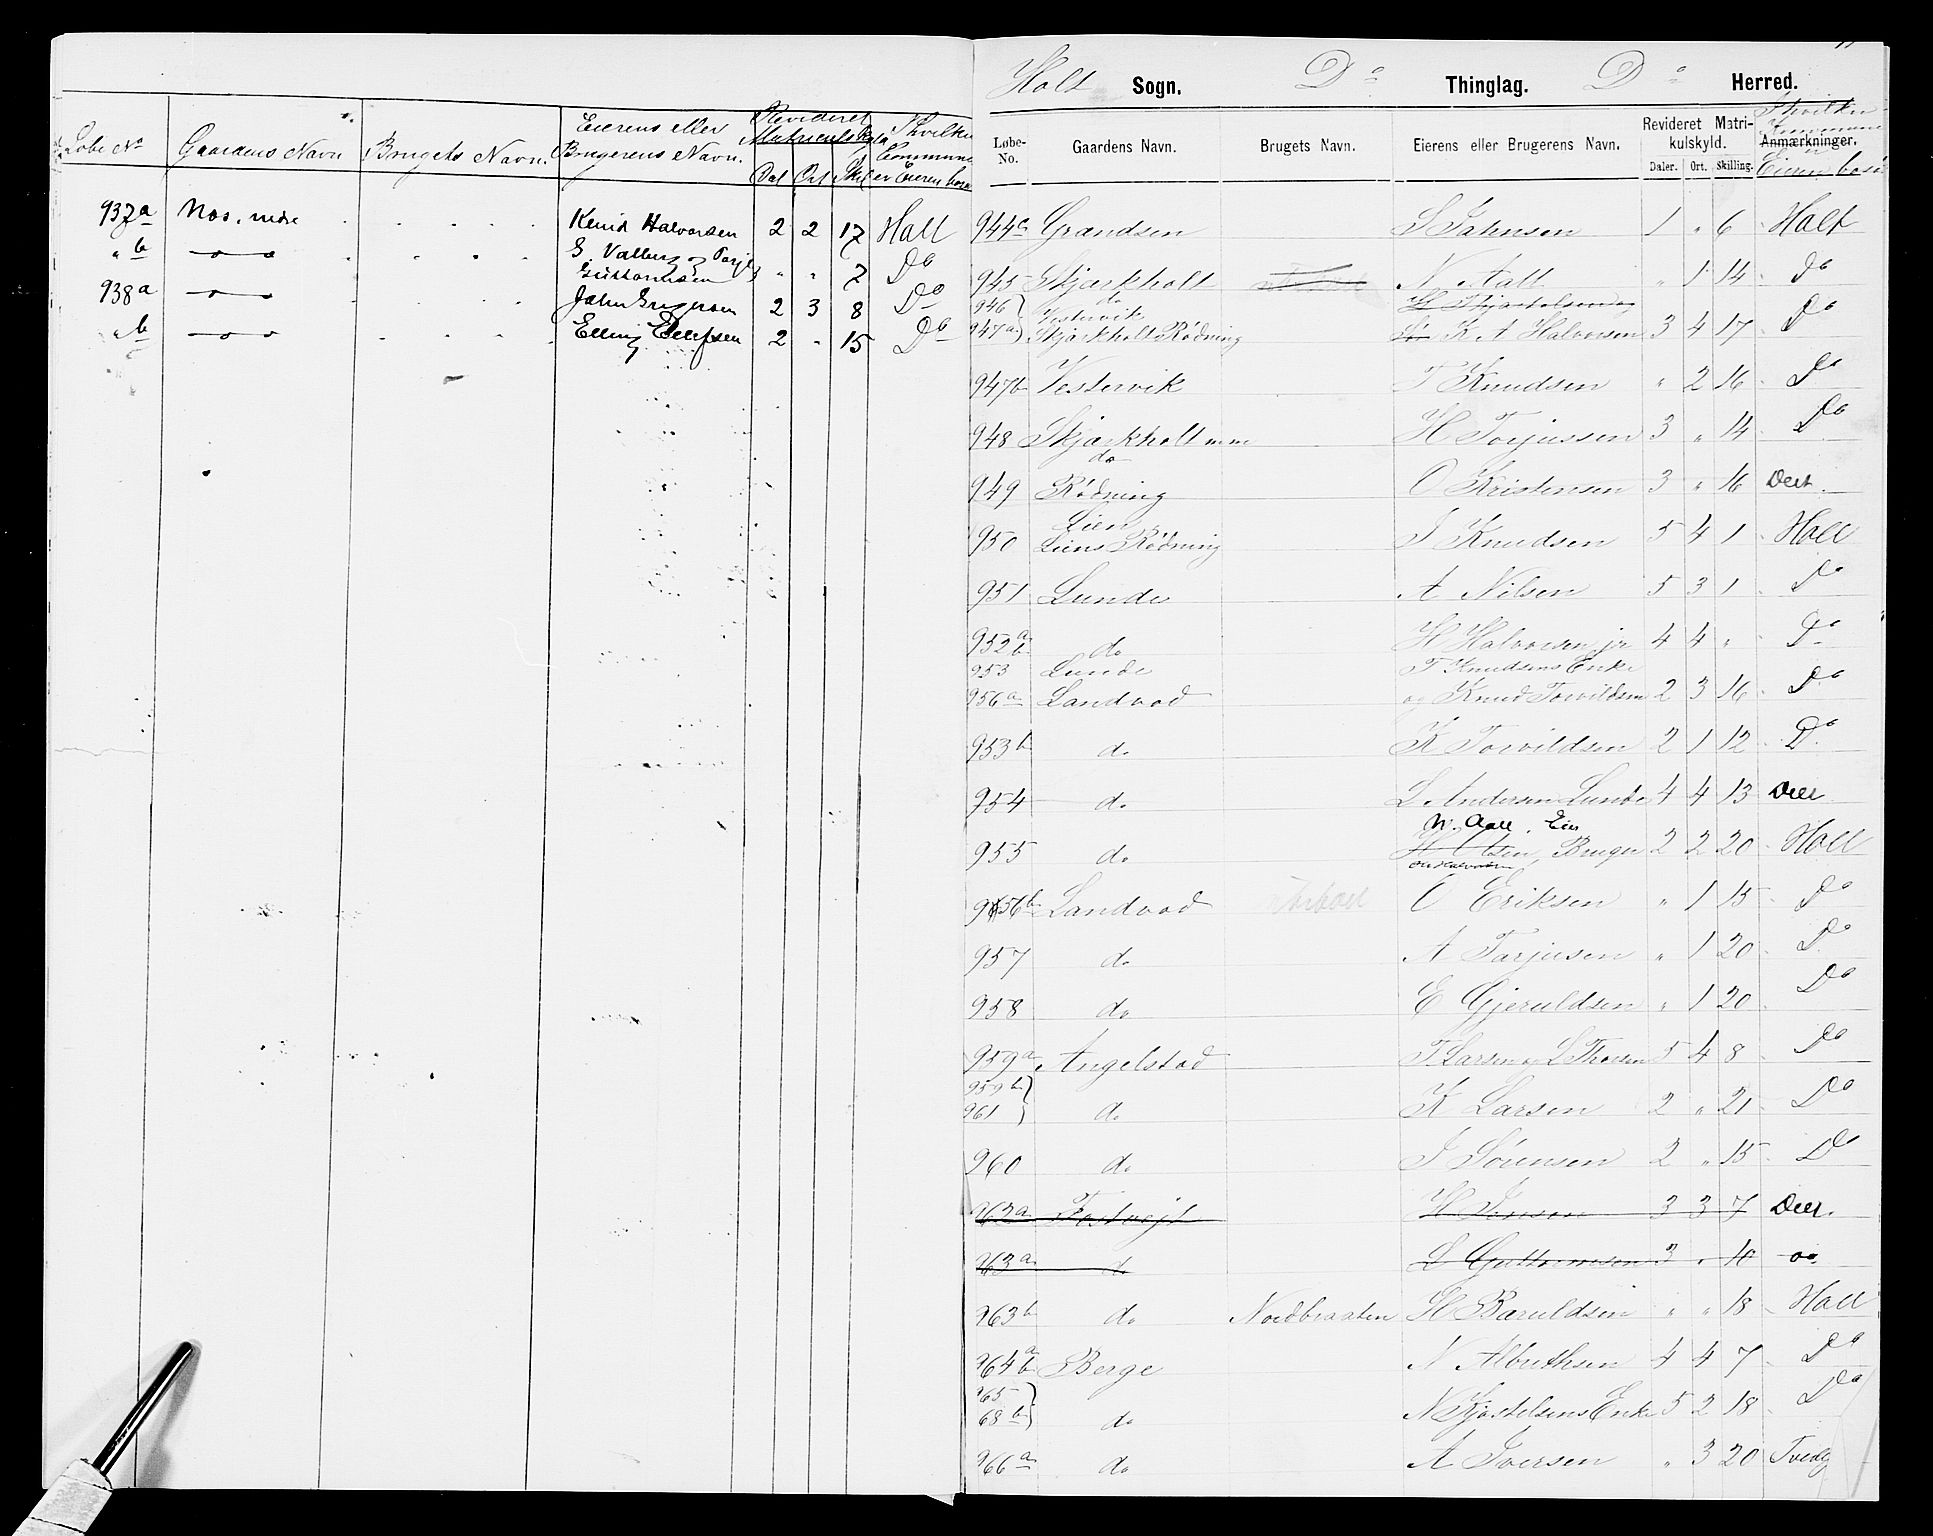 Løbe No Gaardens Navn Brugets Navn. Eierens eller Brugerens Navn. Revideret Matriculskyld Dal Ort Skil I hvilken Commune er Eieren bosat
937a Nos. nedre Knud Halvorsen 2 2 17 Holt
" b —"— —"— G. Valberg og Terje Guttormsen " " 7 Do
938a —"— —"— John Grigersen 2 3 8 Do
" b —"— —"— Elling Ellefsen 2 " 15 Do
Holt Sogn. Do Thinglag. Do Herred.
Løbe-No. Gaardens Navn. Brugets Navn. Eierens eller Brugerens Navn. Revideret Matrikulskyld. Daler. Ort. Skilling. Anmærkninger. I hvilken Kommune Eieren bosat
944a Grandsen S Jahnsen 1 " 6 Holt
945 Skjærkholt N Aall " 1 14 do
946 do Vestervik
947a Skjærkholt Rødning K A Halvorsen 3 4 17 Do
947b Vestervik T Knudsen " 2 16 Do
948 Skjærkholt mm H Torjussen 3 " 14 Do
949 do Rødning O Kristensen 3 " 16 Død
950 Lien Liens Rødning J Knudsen 5 4 1 Holt
951 Lunde A Nilsen 5 3 1 Do
952 a b do H Halvorsen jr 4 4 " Do
953 Lunde T Knudsens Enke
956a Landvad og Knud Torvildsen 2 3 16 Do
953b do K Torvildsen 2 1 12 Do
954 do L Andersen Lunde 4 4 13
N. Aall. Eier
955 do H Olsen, Bruger 2 2 20 Holt
956b Landvad O Eriksen " 1 15 Do
957 do A Tarjusen " 1 20 Do
958 do E Gjeruldsen " 1 20 Do
959a Angelstad T Larsen og L Thorsen 5 4 8 Do
959b
961 do K Larsen 2 " 21 Do
960 do J Sørensen 2 " 15 Do
962a Fostvejt H Jonson 3 3 7
963a do L Guttormsen 3 " 10 do
963b do Nordbraaten H Baruldsen " " 18 Holt
964 a b Berge N Albrethsen 4 4 7 Do
965
68b do N Kjøstelsens Enke 5 2 18 Do
966a do A Iversen " 3 20 Tvede